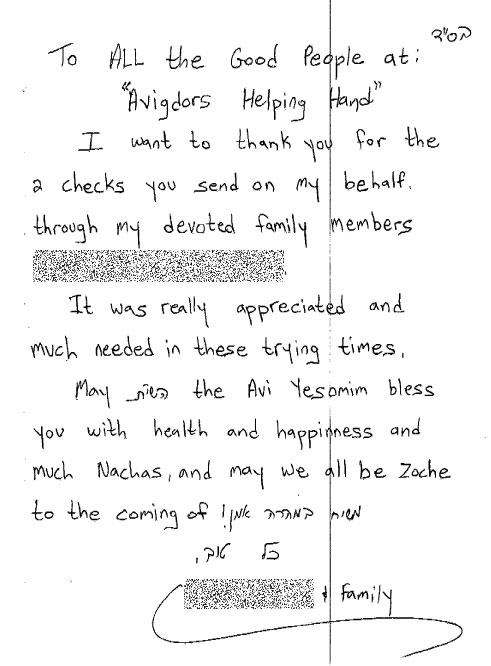 בס"ד
To ALL the Good People at:
"Avigdors Helping Hand"
I want to thank you for the
2 checks you send on my behalf.
through my devoted family members
It was really appreciated and
much needed in these trying times.
May השי"ת the Avi Yesomim bless
you with health and happinness and
much Nachas, and may we all be Zoche
to the coming of משיח במהרה אמן!
כל טוב,
+ family